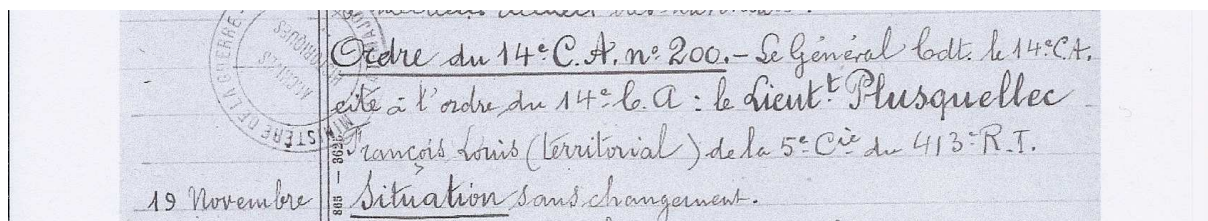 Ordre du 14e C.A. no 200. - Le Général Cdt. le 14e C.A.
cite à l'ordre du 14e C.A : le Lieutt Plusquellec
François Louis (territorial) de la 5e Cie du 413e R.I.
19 Novembre Situation sans changement.
MINISTÈRE DE LA GUERRE
ARCHIVES
HISTORIQUES
865 - 3626